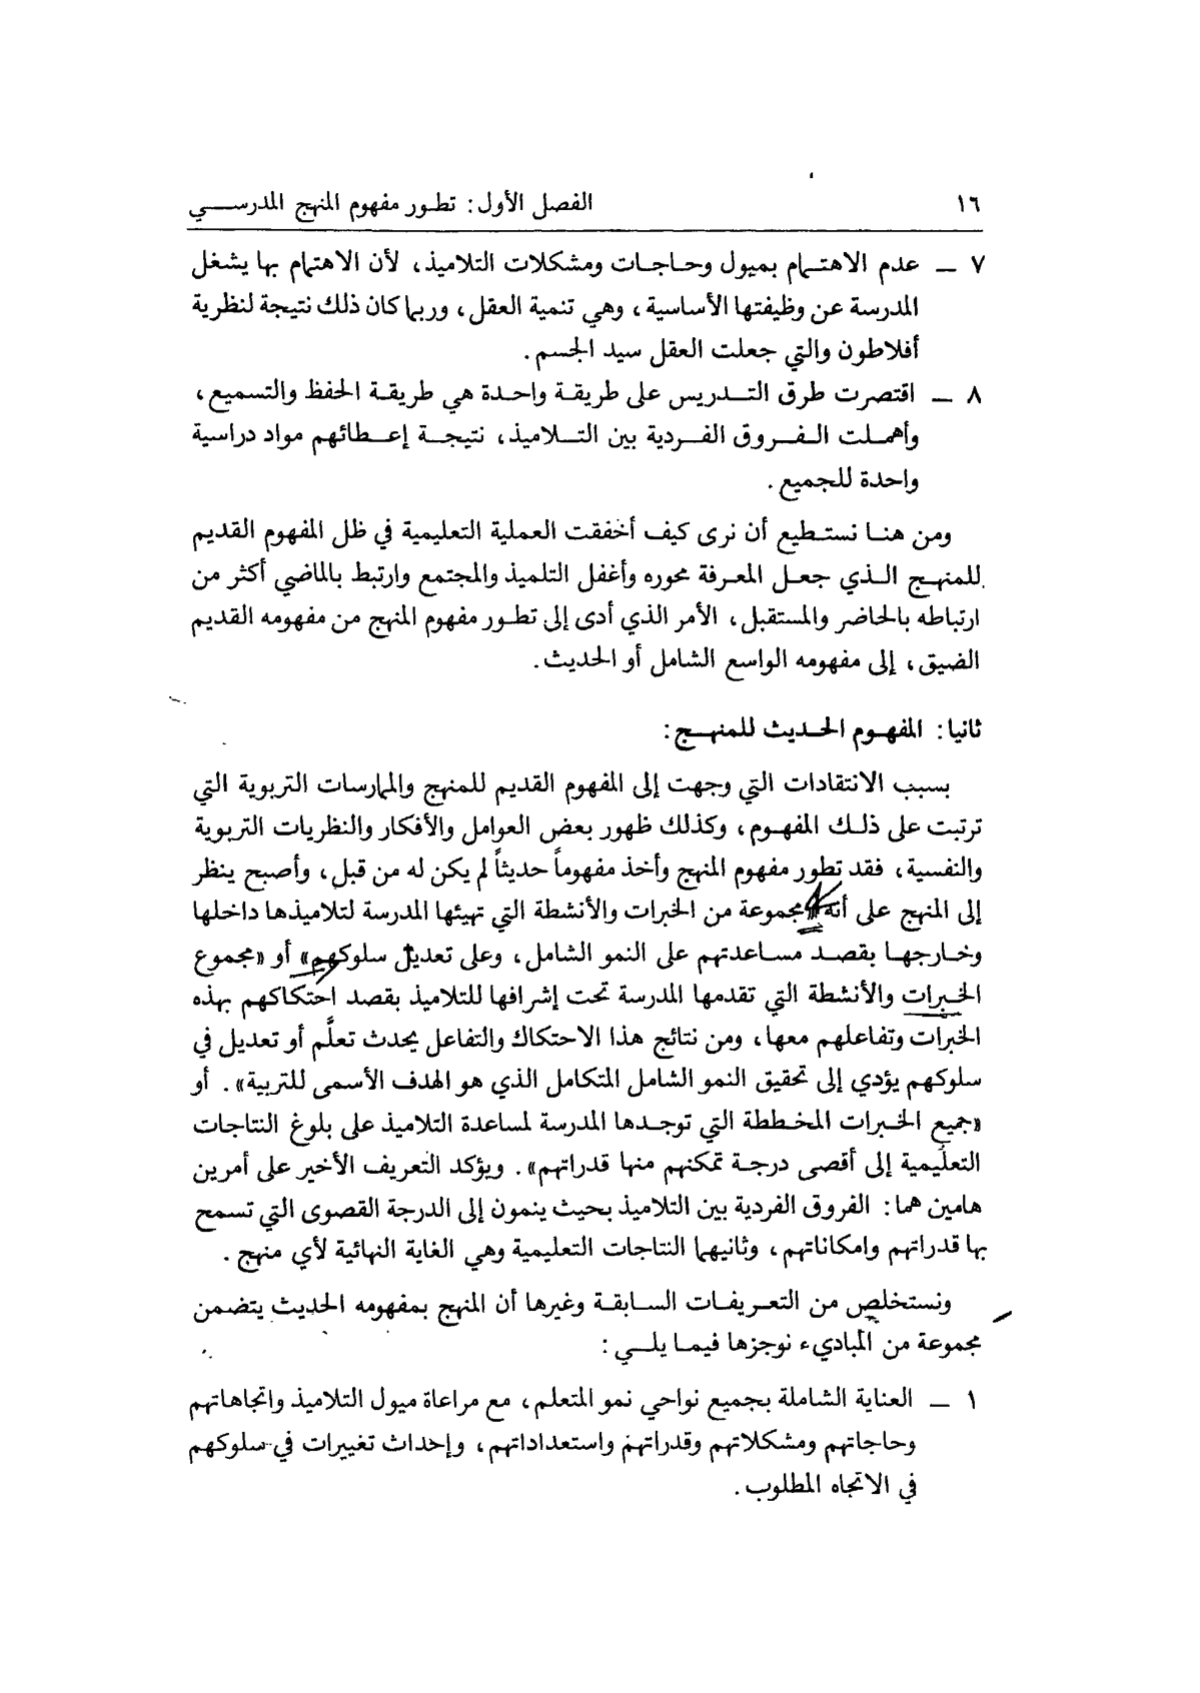 ١٦ الفصل الأول: تطور مفهوم المنهج المدرسي
٧ ـ عدم الاهتمام بميول وحاجات ومشكلات التلاميذ، لأن الاهتمام بها يشغل
المدرسة عن وظيفتها الأساسية، وهي تنمية العقل، وربما كان ذلك نتيجة لنظرية
أفلاطون والتي جعلت العقل سيد الجسم.
٨ ـ اقتصرت طرق التدريس على طريقة واحدة هي طريقة الحفظ والتسميع،
وأهملت الفروق الفردية بين التلاميذ، نتيجة إعطائهم مواد دراسية
واحدة للجميع.
ومن هنا نستطيع أن نرى كيف أخفقت العملية التعليمية في ظل المفهوم القديم
للمنهج الذي جعل المعرفة محوره وأغفل التلميذ والمجتمع وارتبط بالماضي أكثر من
ارتباطه بالحاضر والمستقبل، الأمر الذي أدى إلى تطور مفهوم المنهج من مفهومه القديم
الضيق، إلى مفهومه الواسع الشامل أو الحديث.
ثانيا: المفهوم الحديث للمنهج:
بسبب الانتقادات التي وجهت إلى المفهوم القديم للمنهج والممارسات التربوية التي
ترتبت على ذلك المفهوم، وكذلك ظهور بعض العوامل والأفكار والنظريات التربوية
والنفسية، فقد تطور مفهوم المنهج وأخذ مفهوماً حديثاً لم يكن له من قبل، وأصبح ينظر
إلى المنهج على أنه «مجموعة من الخبرات والأنشطة التي تهيئها المدرسة لتلاميذها داخلها
وخارجها بقصد مساعدتهم على النمو الشامل، وعلى تعديل سلوكهم» أو «مجموع
الخبرات والأنشطة التي تقدمها المدرسة تحت إشرافها للتلاميذ بقصد احتكاكهم بهذه
الخبرات وتفاعلهم معها، ومن نتائج هذا الاحتكاك والتفاعل يحدث تعلَّم أو تعديل في
سلوكهم يؤدي إلى تحقيق النمو الشامل المتكامل الذي هو الهدف الأسمى للتربية». أو
«جميع الخبرات المخططة التي توجدها المدرسة لمساعدة التلاميذ على بلوغ النتاجات
التعليمية إلى أقصى درجة تمكنهم منها قدراتهم». ويؤكد التعريف الأخير على أمرين
هامين هما: الفروق الفردية بين التلاميذ بحيث ينمون إلى الدرجة القصوى التي تسمح
بها قدراتهم وامكاناتهم، وثانيهما النتاجات التعليمية وهي الغاية النهائية لأي منهج.
ونستخلص من التعريفات السابقة وغيرها أن المنهج بمفهومه الحديث يتضمن
مجموعة من المباديء نوجزها فيما يلي:
١ ـ العناية الشاملة بجميع نواحي نمو المتعلم، مع مراعاة ميول التلاميذ واتجاهاتهم
وحاجاتهم ومشكلاتهم وقدراتهم واستعداداتهم، وإحداث تغييرات في سلوكهم
في الاتجاه المطلوب.